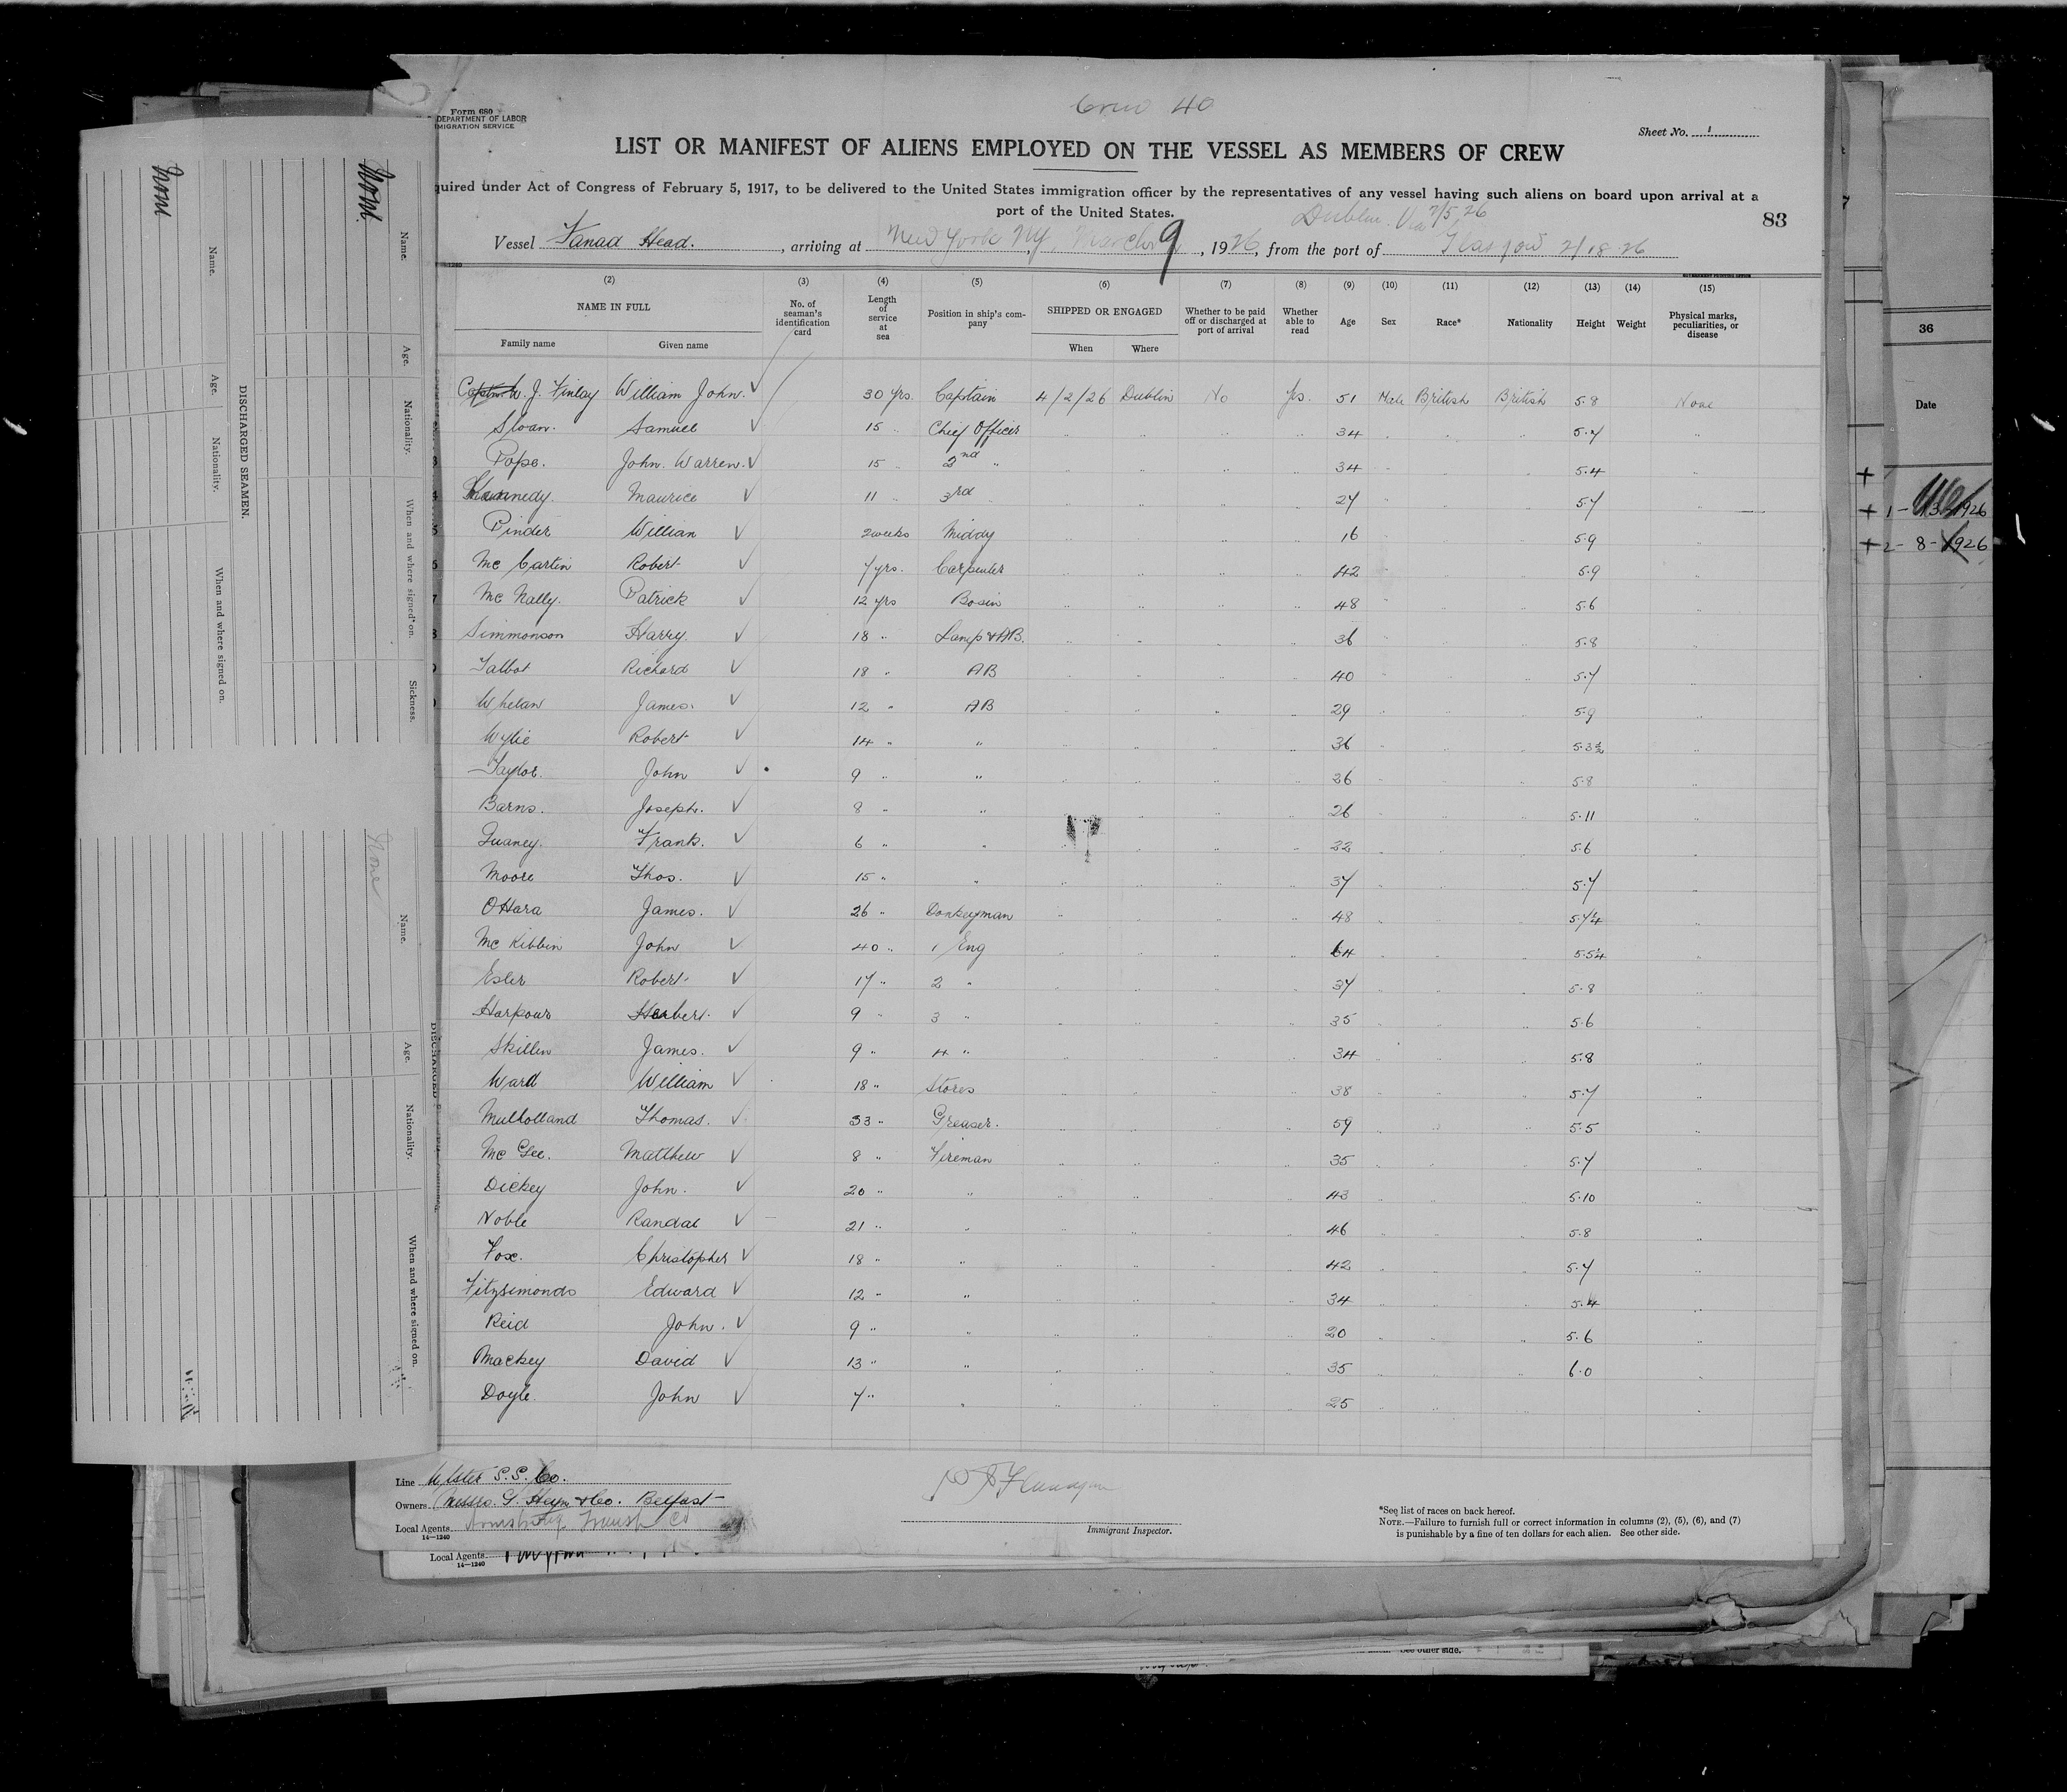 Crew 40
Form 680
DEPARTMENT OF LABOR
MIGRATION SERVICE
Sheet No. 1
LIST OR MANIFEST OF ALIENS EMPLOYED ON THE VESSEL AS MEMBERS OF CREW
quired under Act of Congress of February 5, 1917, to be delivered to the United States immigration officer by the representatives of any vessel having such aliens on board upon arrival at a
port of the United States.
Dublin Via 2/5/26
83
Vessel Fanad Head. , arriving at New York NY, March 9, 1926, from the port of Glasgow 2/18 26
(2) (3) (4) (5) (6) (7) (8) (9) (10) (11) (12) (13) (14) (15)
NAME IN FULL No. of seaman's identification card Length of service at sea Position in ship's company SHIPPED OR ENGAGED Whether to be paid off or discharged at port of arrival Whether able to read Age Sex Race* Nationality Height Weight Physical marks, peculiarities, or disease
Family name Given name When Where
W. J. Finlay William John. 30 yrs. Captain 4/2/26 Dublin No Yes. 51 Male British British 5.8 None
Sloan. Samuel 15 " Chief Officer 34 5.7
Pope. John. Warren. 15 " 2nd " 34 5.4
Kennedy. Maurice 11 " 3rd 27 5.7
Pinder William 2 weeks Middy 16 5.9
Mc Cartin Robert 7 yrs. Carpenter 42 5.9
Mc Nally. Patrick 12 yrs Bosin 48 5.6
Simmonson Harry 18 " Lamp & AB. 36 5.8
Talbot Richard 18 " AB 40 5.7
Whelan James. 12 " AB 29 5.9
Wylie Robert 14 " " 36 5.3½
Taylor. John 9 " " 26 5.8
Barns. Joseph. 8 " " 26 5.11
Frank. 6 " " 22 5.6
Moore Thos. 15 " " 37 5.7
OHara James. 26 " Donkeyman 48 5.7¼
Mc Kibbin John 40 " 1 Eng 64 5.5¼
Esler Robert 17 " 2 " 37 5.8
Harpour Herbert. 9 " 3 " 35 5.6
Skillen James. 9 " 4 " 34 5.8
Ward William 18 " Stores 38 5.7
Mullolland Thomas. 33 " Greaser. 59 5.5
Mc Gee. Matthew 8 " Fireman 35 5.7
Dickey John. 20 " " 43 5.10
Noble Randal 21 " " 46 5.8
Fox. Christopher 18 " " 42 5.7
Fitzsimonds Edward 12 " " 34 5.4
Reid John. 9 " " 20 5.6
Mackey David 13 " " 35 6.0
Doyle. John 7 " " 25
Line Ulster S.S. Co.
Owners Messrs. G. Heyn & Co. Belfast
Local Agents Armstrong Transp Co
14—1240
Immigrant Inspector.
*See list of races on back hereof.
NOTE.—Failure to furnish full or correct information in columns (2), (5), (6), and (7)
is punishable by a fine of ten dollars for each alien. See other side.
Local Agents
14—1240
See other side.
DISCHARGED SEAMEN.
Name. Age. Nationality. When and where signed on. Sickness.
Name. Age. Nationality. When and where signed on.
None
Name. Age. Nationality. When and where signed on.
36
Date
1 - 13 - 1926
2 - 8 - 1926